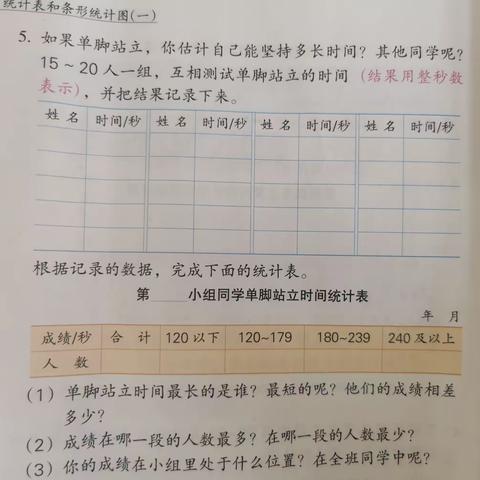 统计表和条形统计图(一)
5. 如果单脚站立，你估计自己能坚持多长时间？其他同学呢？
15～20人一组，互相测试单脚站立的时间（结果用整秒数
表示），并把结果记录下来。
姓名 时间/秒 姓名 时间/秒 姓名 时间/秒 姓名 时间/秒
根据记录的数据，完成下面的统计表。
第 小组同学单脚站立时间统计表
年 月
成绩/秒 合计 120以下 120~179 180~239 240及以上
人数
(1) 单脚站立时间最长的是谁？最短的呢？他们的成绩相差
多少？
(2) 成绩在哪一段的人数最多？在哪一段的人数最少？
(3) 你的成绩在小组里处于什么位置？在全班同学中呢？